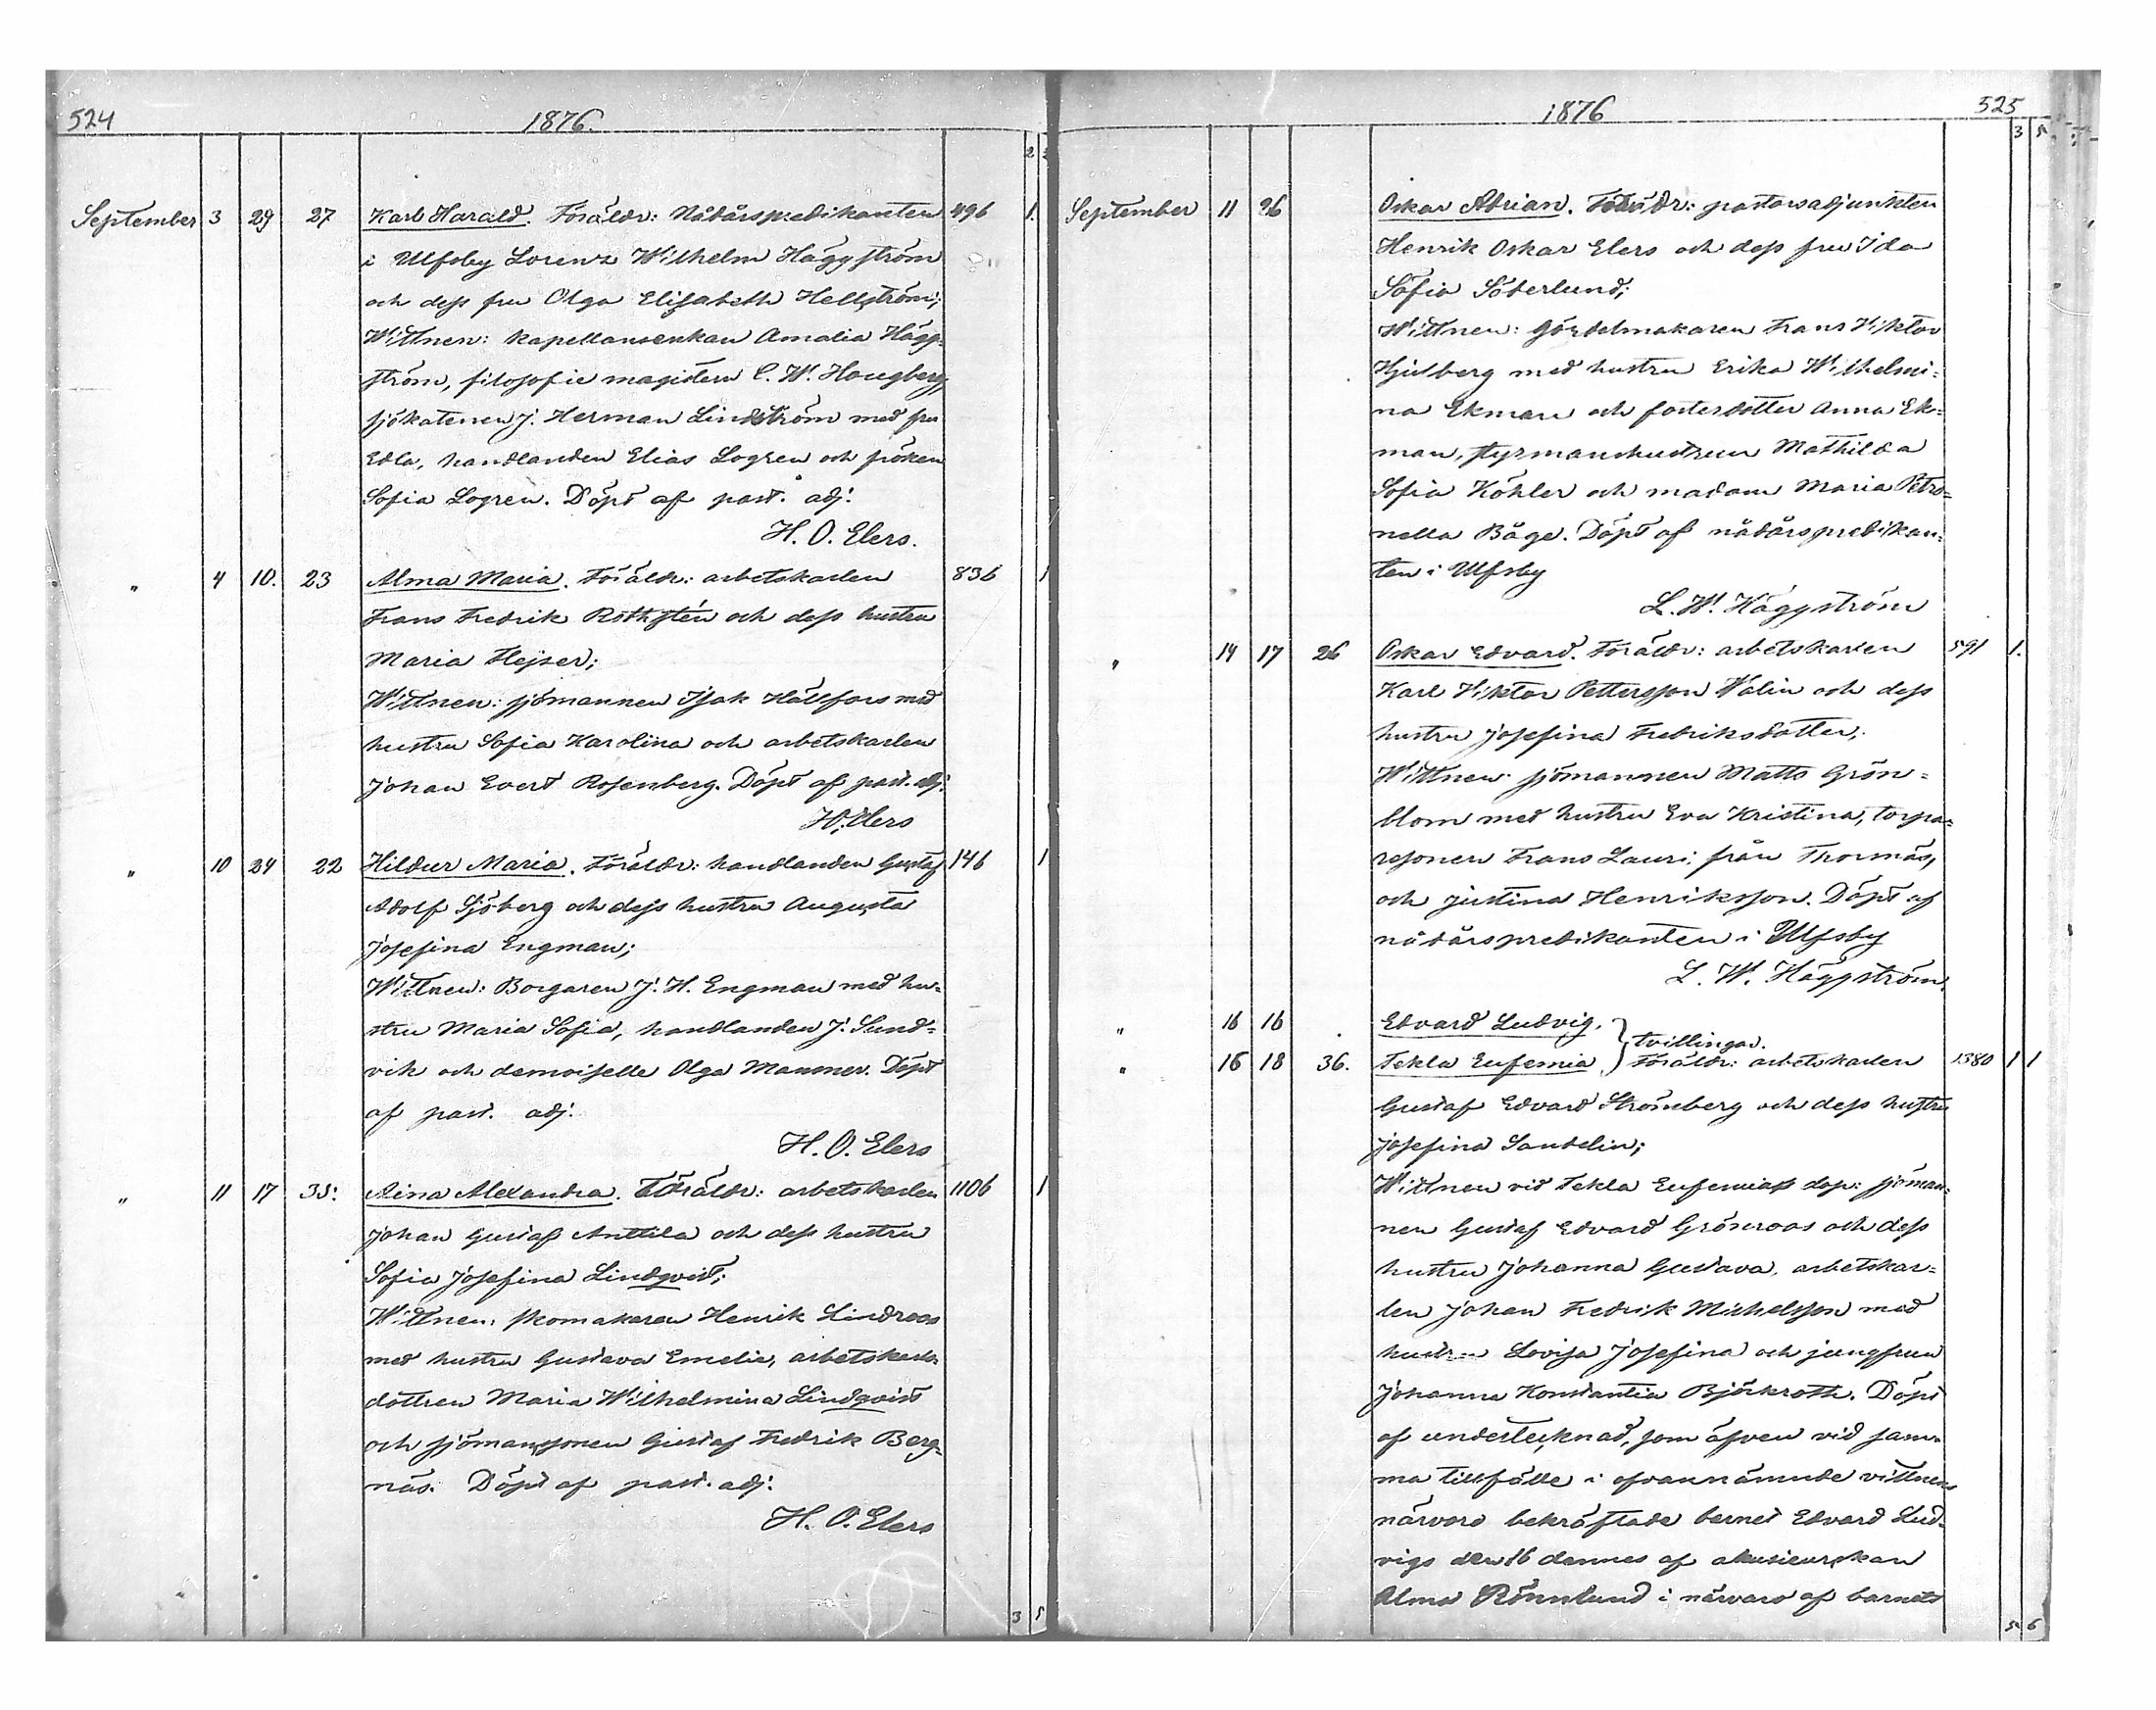 524
1876.
2
September 3 29 27 Karl Harald. Föräldr: Nådårspredikanten 496 1.
i Ulfsby Lorenz Wilhelm Häggström
och dess fru Olga Elisabeth Hellström;
Wittnen: kapellansenkan Amalia Hägg-
ström, filosofie magistern C. W. Hougberg,
sjökatenen J. Herman Lindström med fru
Edla, handlanden Elias Logren och fröken
Sofia Logren. Döpt af past. adj.
H. O. Elers.
" 4 10. 23 Alma Maria. Föräldr: arbetskarlen 836 1
Frans Fredrik Rothstén och dess hustru
Maria Flejser;
Wittnen: sjömannen Isak Hällfors med
hustru Sofia Karolina och arbetskarlen
Johan Evert Rosenberg. Döpt af past. adj.
H. Elers
" 10 24 22 Hildur Maria. Föräldr: handlanden Gustaf 146 1
Adolf Sjöberg och dess hustru Augusta
Josefina Engman;
Wittnen: Borgaren J. H. Engman med hu-
stru Maria Sofia, handlanden J. Sund-
vik och demoiselle Olga Manner. Döpt
af past. adj.
H. O. Elers
" 11 17 35. Aina Alexandra. Föräldr: arbetskarlen 1106 1
Johan Gustaf Anttila och dess hustru
Sofia Josefina Lindqvist;
Wittnen: skomakaren Henrik Lindroos
med hustru Gustava Emelia, arbetskarls
dottren Maria Wilhelmina Lindqvist
och sjömanssonen Gustaf Fredrik Berg-
näs. Döpt af past. adj.
H. O. Elers
3 5
1876
525
3 5
September 11 26 Oskar Adrian. Föräldr: pastorsadjunkten
Henrik Oskar Elers och dess fru Ida
Sofia Söderlund;
Wittnen: Gördelmakaren Frans Viktor
Hjulberg med hustru Erika Wilhelmi-
na Ekman och fosterdotter Anna Ek-
man, styrmanshustrun Mathilda
Sofia Köhler och madam Maria Petro-
nella Båge. Döpt af nådårspredikan-
ten i Ulfsby
L. W. Häggström
" 14 17 26 Oskar Edvard. Föräldr: arbetskarlen 591 1.
Karl Viktor Pettersson Walin och dess
hustru Josefina Fredriksdotter;
Wittnen: sjömannen Matts Grön-
blom med hustru Eva Kristina, torpa-
resonen Frans Lauri från Thornäs,
och Justina Henriksson. Döpt af
nådårspredikanten i Ulfsby
L. W. Häggström.
" 16 16 Edvard Ludvig,
tvillingar.
" 16 18 36. Tekla Eufemia, Föräldr: arbetskarlen 1380 1 1
Gustaf Edvard Strömberg och dess hustru
Josefina Sandelin;
Wittnen vid Tekla Eufemias dop: sjöman-
nen Gustaf Edvard Grönroos och dess
hustru Johanna Gustava, arbetskar-
len Johan Fredrik Michelsson med
hustru Lovisa Josefina och jungfrun
Johanna Konstantia Björkroth. Döpt
af undertecknad, som äfven vid sam-
ma tillfälle i ofvannämnde vittnens
närvaro bekräftade barnet Edvard Lud-
vigs den 16 dennes af akusieurskan
Alma Rönnlund i närvaro af barnets
5 6